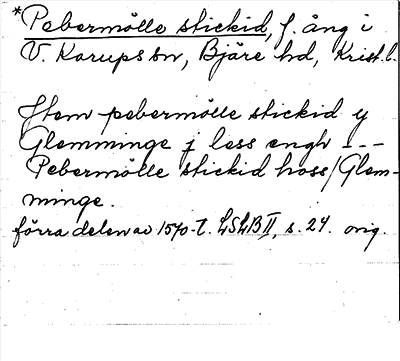 *Pebermölle stickid, f. ång i
V. Karups sn, Bjäre hd, Krist. l.
Item pebermölle stickid y
Glemminge j less engh ---
Pebermölle stickid hoss/Glem-
minge.
förra delen av 1570-t. LSLB II, s. 24. orig.